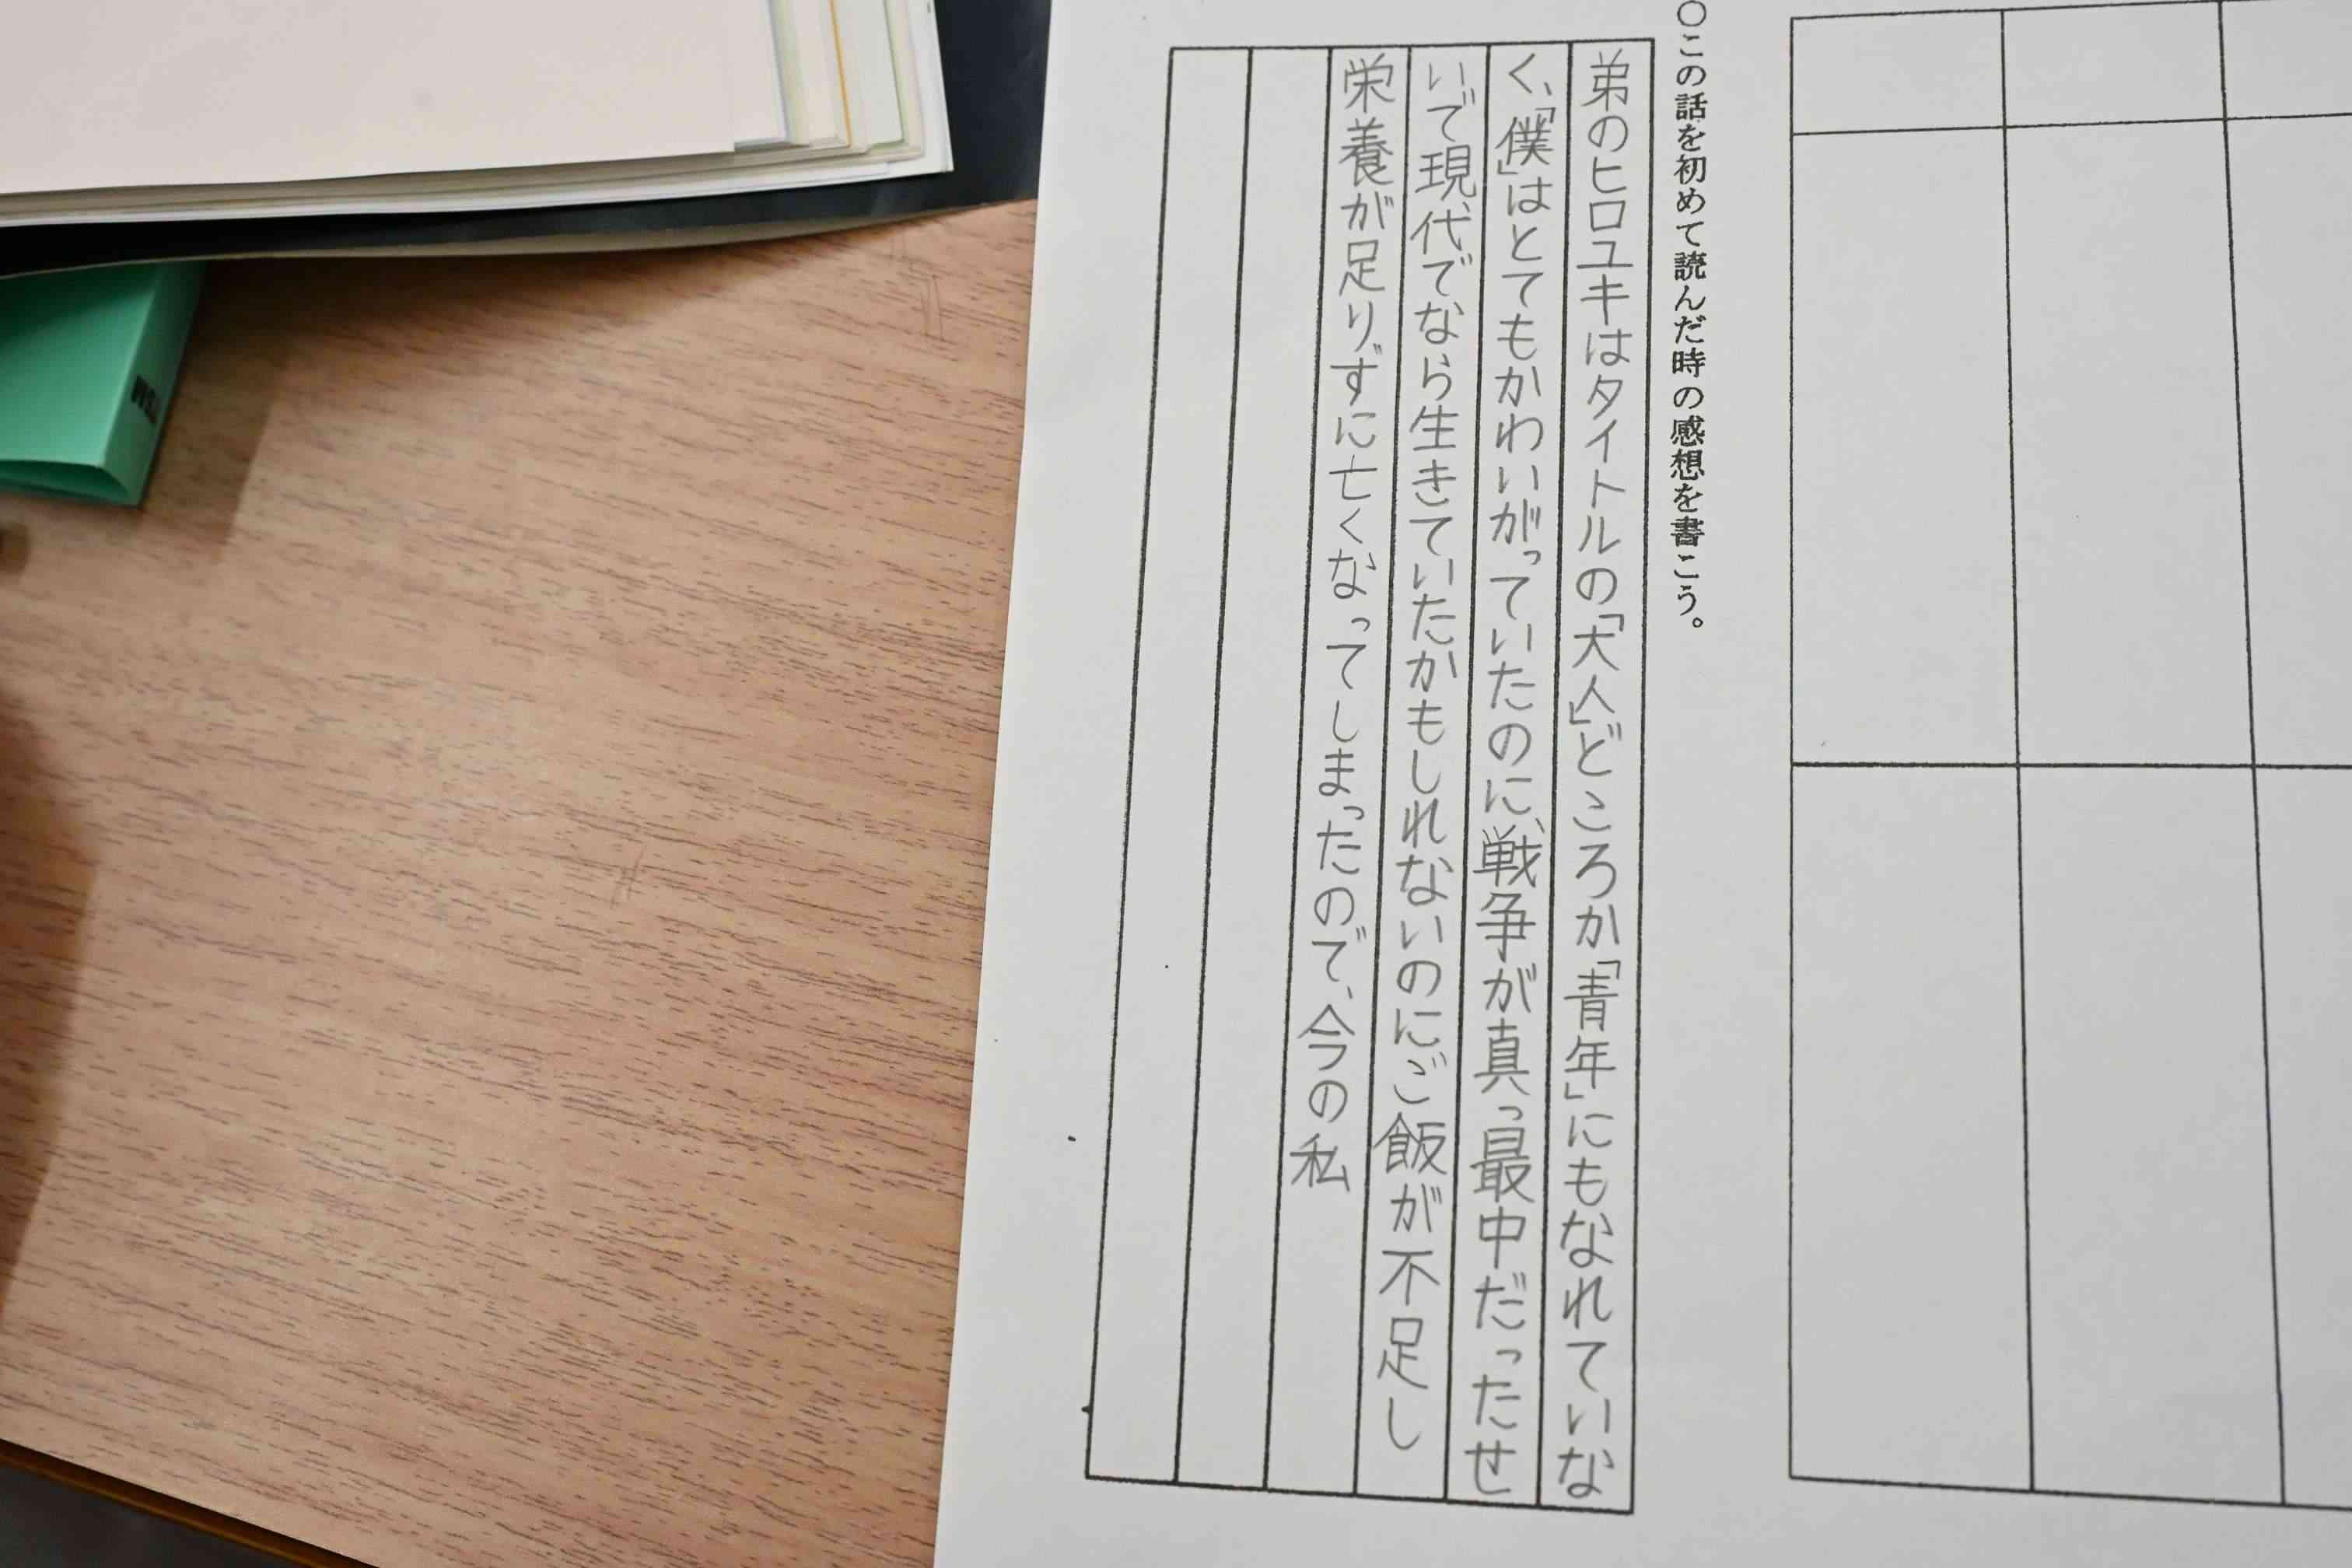 ○この話を初めて読んだ時の感想を書こう。
弟のヒロユキはタイトルの「大人」どころか「青年」にもなれていな
く、「僕」はとてもかわいがっていたのに、戦争が真っ最中だったせ
いで現代でなら生きていたかもしれないのにご飯が不足し
栄養が足りずに亡くなってしまったので、今の私